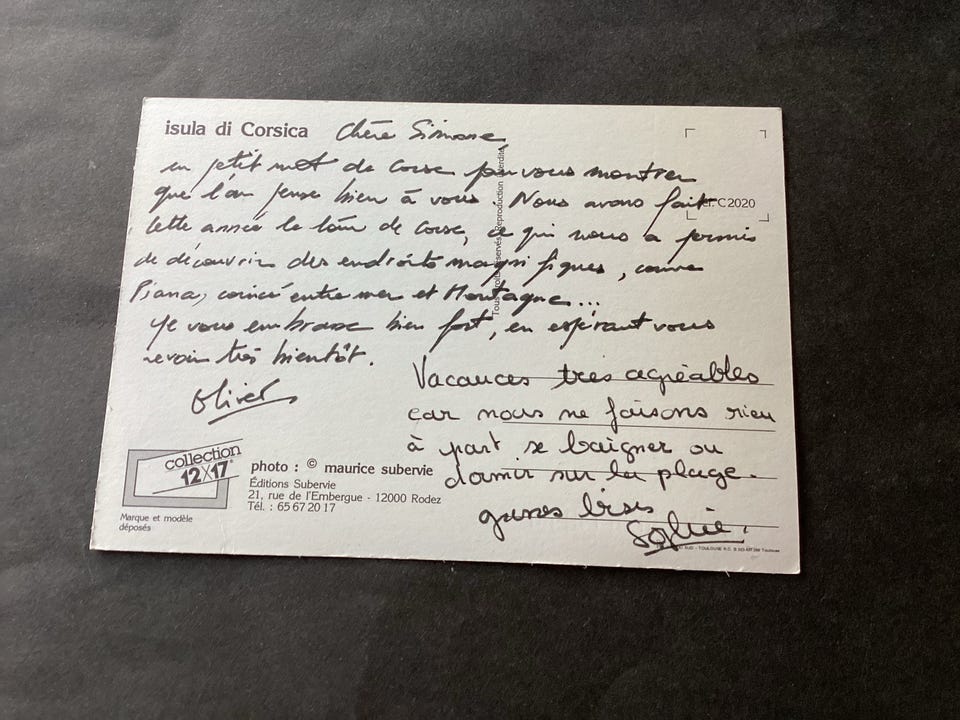 isula di Corsica
Chère Simone,
un petit mot de Corse pour vous montrer
que l'on pense bien à vous. Nous avons fait
cette année le tour de Corse, ce qui nous a permis
de découvrir des endroits magnifiques, comme
Piana, coincé entre mer et Montagne...
Je vous embrasse bien fort, en espérant vous
revoir très bientôt.
Vacances très agréables
car nous ne faisons rien
à part se baigner ou
dormir sur la plage.
grosses bises
Sophie.
C2020
Tous droits réservés Reproduction interdite
collection
12X17
Marque et modèle
déposés
photo : © maurice subervie
Éditions Subervie
21, rue de l'Embergue - 12000 Rodez
Tél. : 65 67 20 17